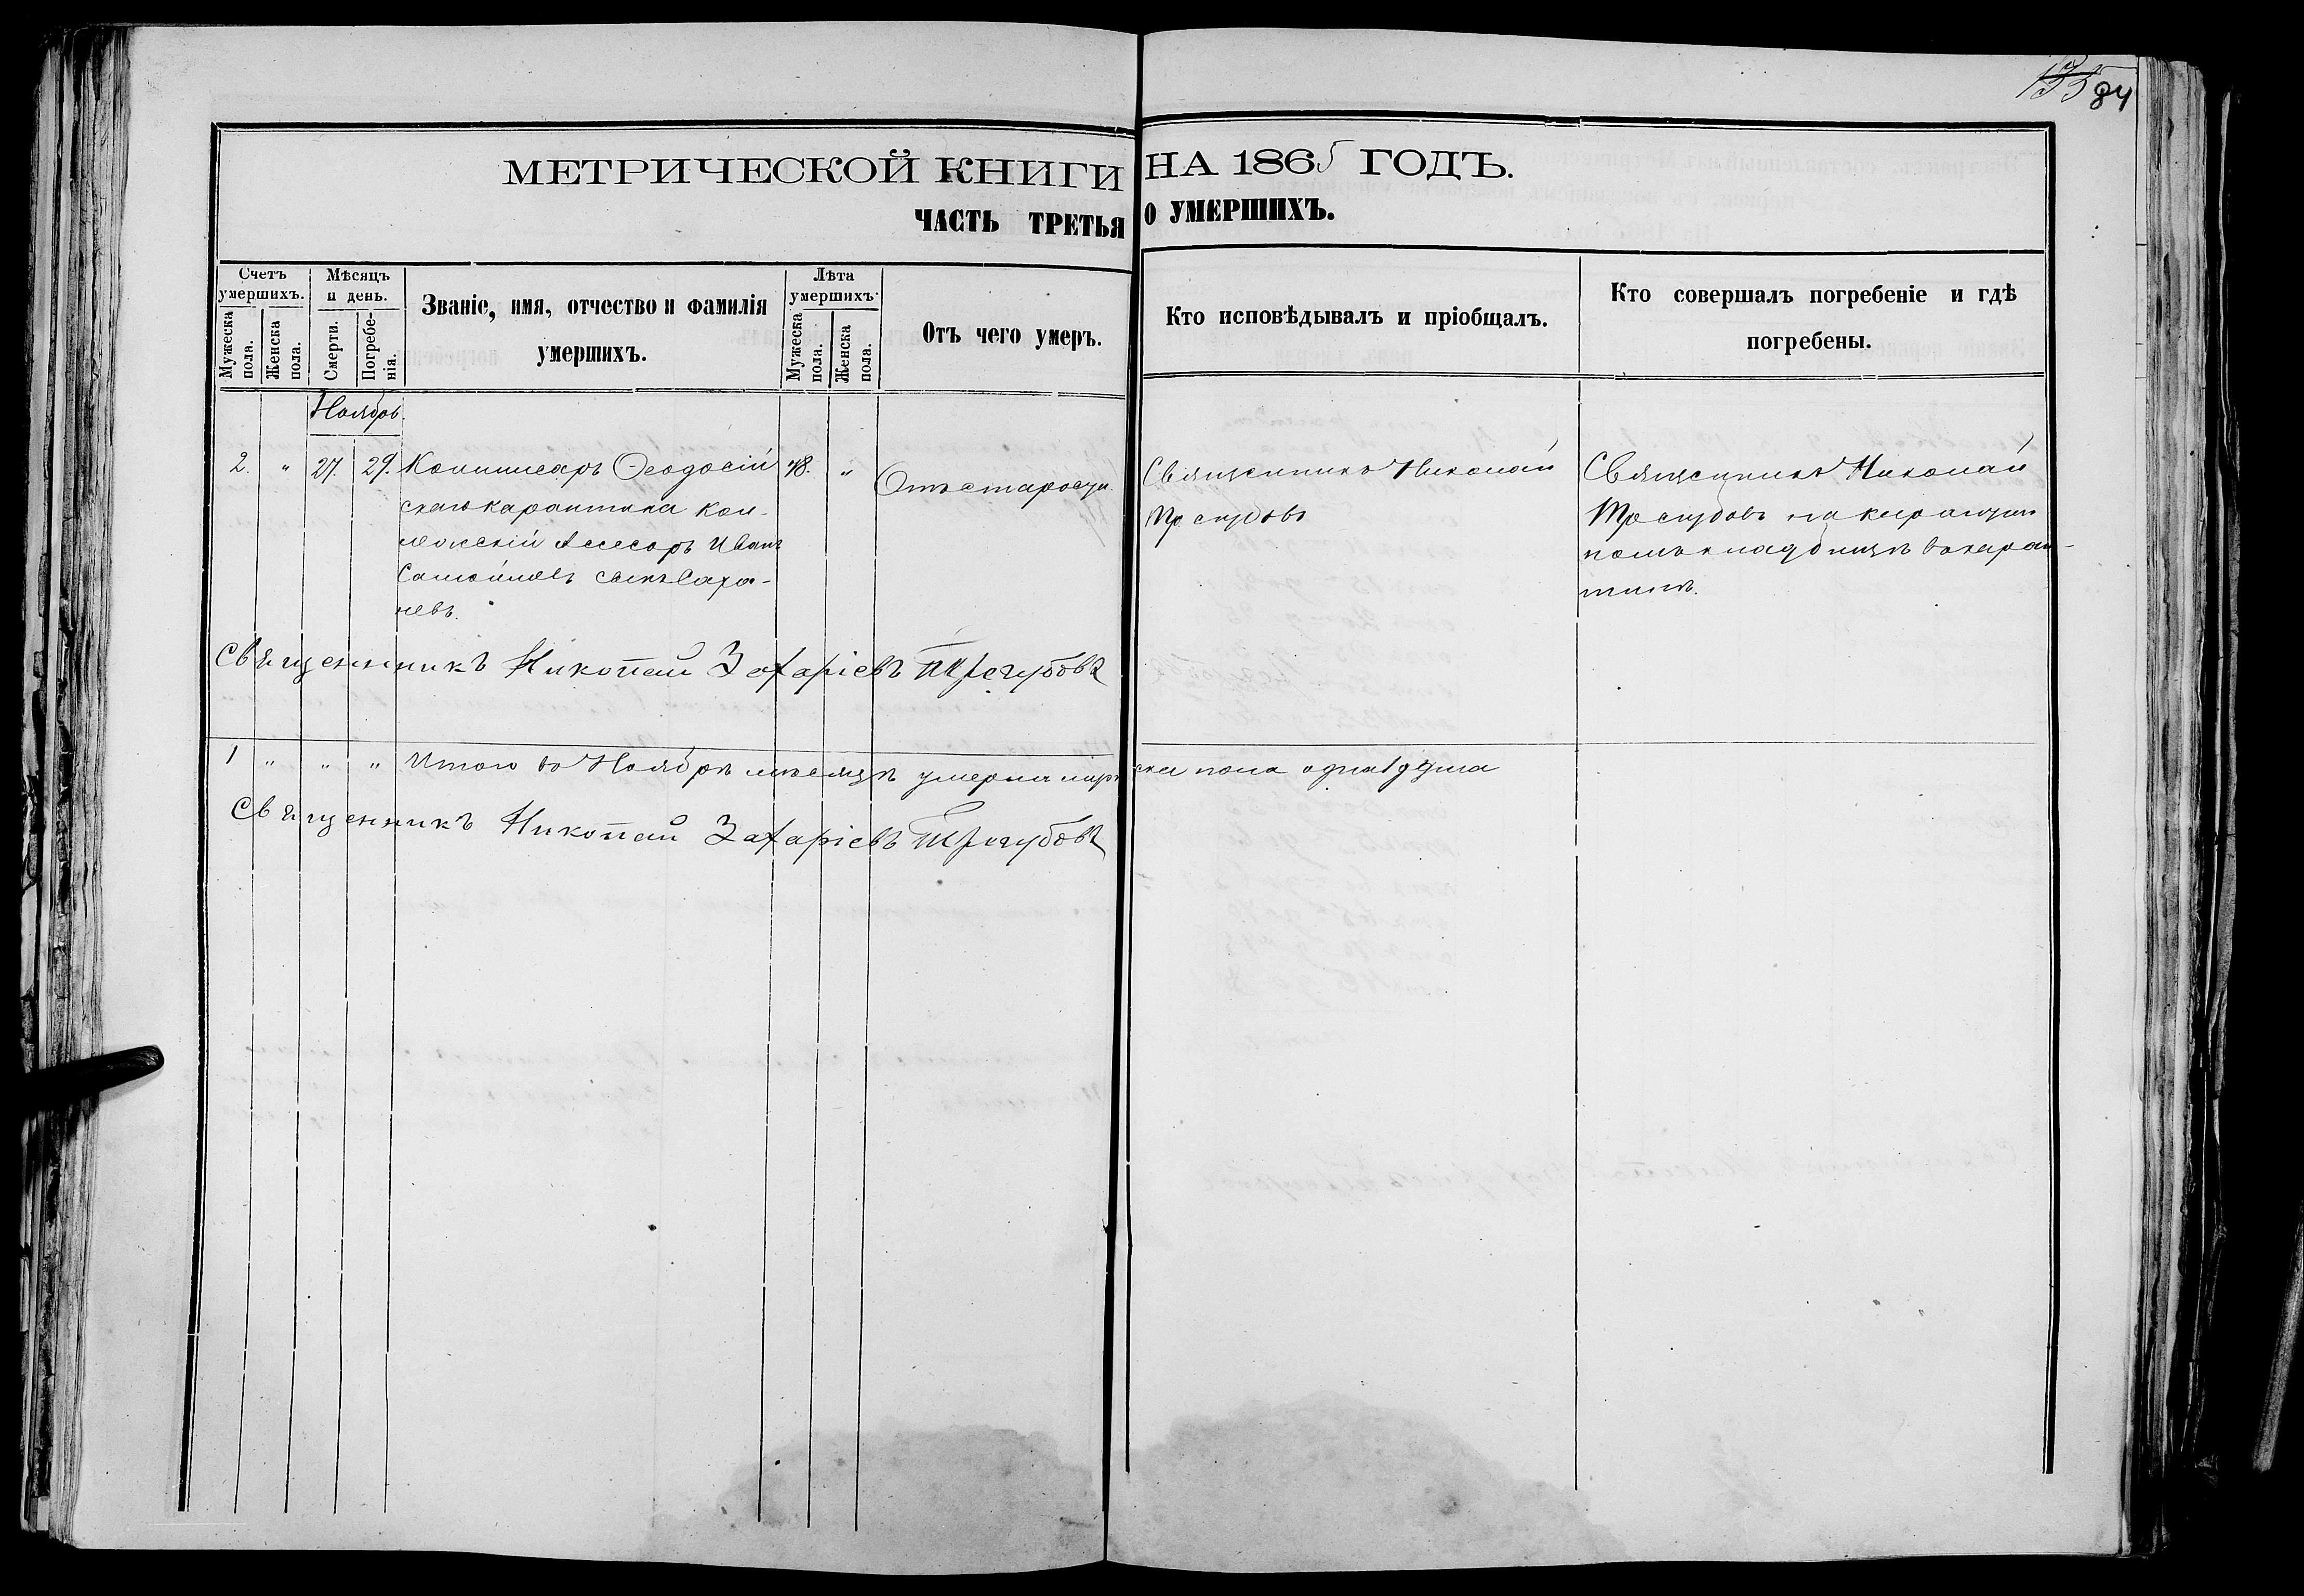 135 84
МЕТРИЧЕСКОЙ КНИГИ НА 1865 ГОДЪ.
ЧАСТЬ ТРЕТЬЯ О УМЕРШИХЪ.
Счетъ умершихъ.
Мужеска пола.
Женска пола.
Мѣсяцъ и день.
Смерти.
Погребе-
нія.
Званіе, имя, отчество и фамилія
умершихъ.
Лѣта умершихъ.
Мужеска пола.
Женска пола.
Отъ чего умеръ.
Кто исповѣдывалъ и пріобщалъ.
Кто совершалъ погребеніе и гдѣ
погребены.
Ноябрь.
2. " 27. 29. Коммисаръ Ѳеодосій
скаго карантина кол-
лежскій Асесоръ Иванъ
Самойловъ сынъ
невъ.
78. "
Отъ старости.
Священникъ Николай
Трегубовъ
Священникъ Николай
Трегубовъ на
номъ кладбищѣ вкаран-
тинѣ.
Священникъ Николай Захаріевъ Трегубовъ
1 " " " Итого въ Ноябрѣ мѣсяцѣ умерла муже ска пола одна 1 душа
Священникъ Николай Захаріевъ Трегубовъ